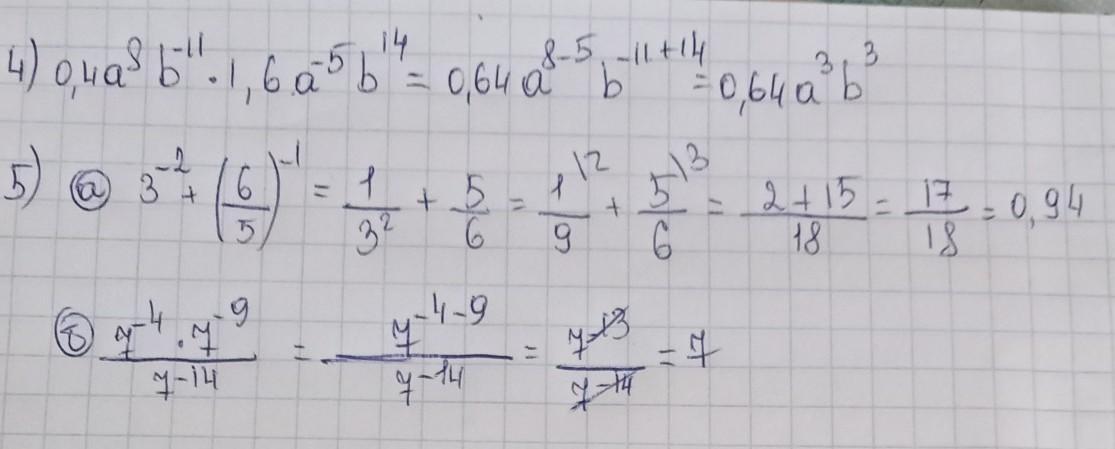 4) 0,4a⁸b⁻¹¹ · 1,6a⁻⁵b¹⁴ = 0,64a⁸⁻⁵b⁻¹¹⁺¹⁴ = 0,64a³b³
5) ⓐ 3⁻² + (6/5)⁻¹ = 1/3² + 5/6 = 1\²/9 + 5\³/6 = (2+15)/18 = 17/18 = 0,94
ⓑ (7⁻⁴ · 7⁻⁹)/7⁻¹⁴ = 7⁻⁴⁻⁹/7⁻¹⁴ = 7⁻¹³/7⁻¹⁴ = 7